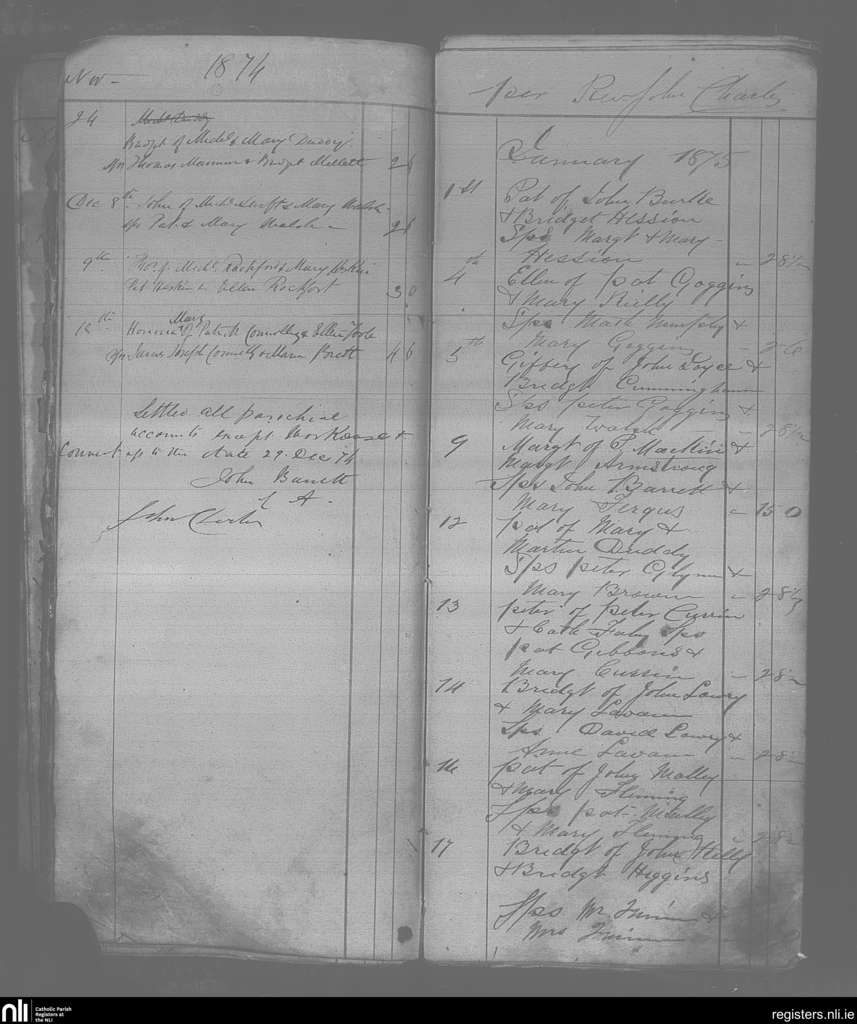 Nov - 1874
24 Michl Duddy
Bridgt of Michl & Mary Duddy
Sps Thomas & Bridgt Mellett 2 6
Dec 8th John of Michl Swift & Mary Walsh
sps Pat & Mary Walsh - 2 6
9th of Michl Rochfort & Mary
Pat & Ellen Rochfort 3 0
Mary
12th Honoria of Patrick Connolly & Ellen Toole
Sps James Joseph Connolly & Maria Brett 4 6
Settled all parochial
accounts except Workouse &
Convent up to this date 29 Dec 74
John Barrett
C A.
John Charles
per Rev John Charles
January 1875
1st Pat of John Burke
& Bridget Hession
Sps Margt & Mary
Hession - 2 8 1/2
4th Ellen of pat Goggins
& Mary Reilly
Sps Math Murphy &
Mary Goggins - 2 6
5th of John Joyce &
Bridgt Cunningham
Sps peter Goggins &
Mary Walsh - 2 8 1/2
9 Margt of P. Mackin &
Margt Armstrong
Sps John Barrett &
Mary Fergus - 15 0
12 pat of Mary &
Martin Duddy
Sps peter Glynn &
Mary Brown - 2 8 1/2
13 peter of peter Currin
& Cath Fahy Sps
pat Gibbons &
Mary Currin - 2 8 1/2
14 Bridgt of John Lowry
& Mary Lavan
Sps David Lowry &
Anne Lavan - 2 8 1/2
16 pat of John Malley
& Mary Fleming
Sps pat
& Mary Fleming - 2 8 1/2
17 Bridgt of John Kelly
& Bridgt Higgins
Sps Mr &
Mrs
nli Catholic Parish
Registers at
the NLI
registers.nli.ie